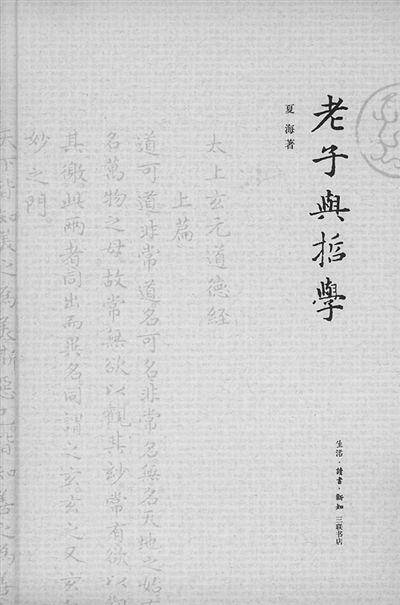 老子與哲學
夏 海 著
生活·讀書·新知 三联书店
太上玄元道德經
上篇
道可道非常道名可名非常名無名天地之始
名萬物之母故常無欲以觀其妙常有欲以觀
其徼此兩者同出而異名同謂之玄玄又玄
妙之門
天下皆知美之為美斯惡已皆知善之為善